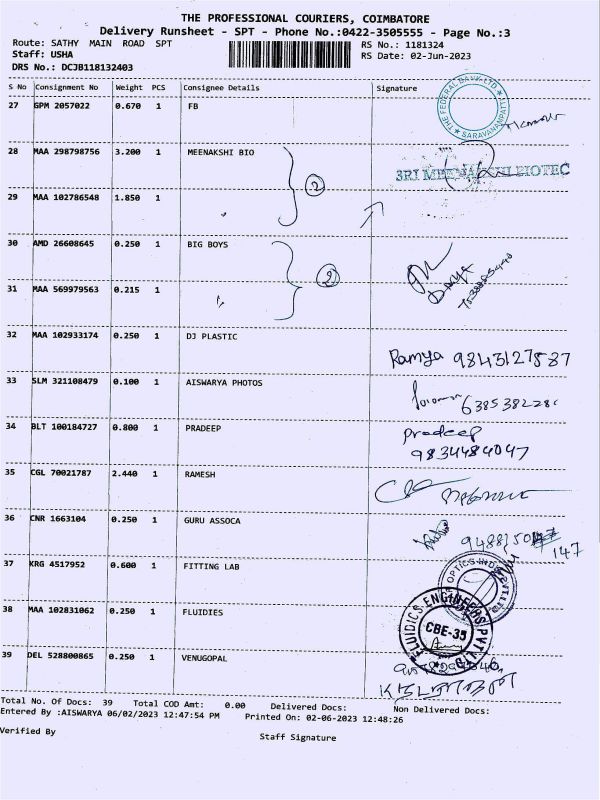 THE PROFESSIONAL COURIERS, COIMBATORE
Delivery Runsheet - SPT - Phone No.:0422-3505555 - Page No.:3
Route: SATHY MAIN ROAD SPT RS No.: 1181324
Staff: USHA RS Date: 02-Jun-2023
DRS No.: DCJB118132403
S No Consignment No Weight PCS Consignee Details Signature
27 GPM 2057022 0.670 1 FB
THE FEDERAL BANK LTD. SARAVANAMPATTI
28 MAA 298798756 3.200 1 MEENAKSHI BIO
2
29 MAA 102786548 1.850 1
30 AMD 26608645 0.250 1 BIG BOYS
2
31 MAA 569979563 0.215 1
32 MAA 102933174 0.250 1 DJ PLASTIC
Ramya 9843127587
33 SLM 321108479 0.100 1 AISWARYA PHOTOS
34 BLT 100184727 0.800 1 PRADEEP
pradeep
9834484047
35 CGL 70021787 2.440 1 RAMESH
36 CNR 1663104 0.250 1 GURU ASSOCA
147
37 KRG 4517952 0.600 1 FITTING LAB
38 MAA 102831062 0.250 1 FLUIDIES
FLUIDICS ENGINEERS PVT LTD
CBE-35
39 DEL 528800865 0.250 1 VENUGOPAL
Total No. Of Docs: 39 Total COD Amt: 0.00 Delivered Docs: Non Delivered Docs:
Entered By :AISWARYA 06/02/2023 12:47:54 PM Printed On: 02-06-2023 12:48:26
Verified By
Staff Signature